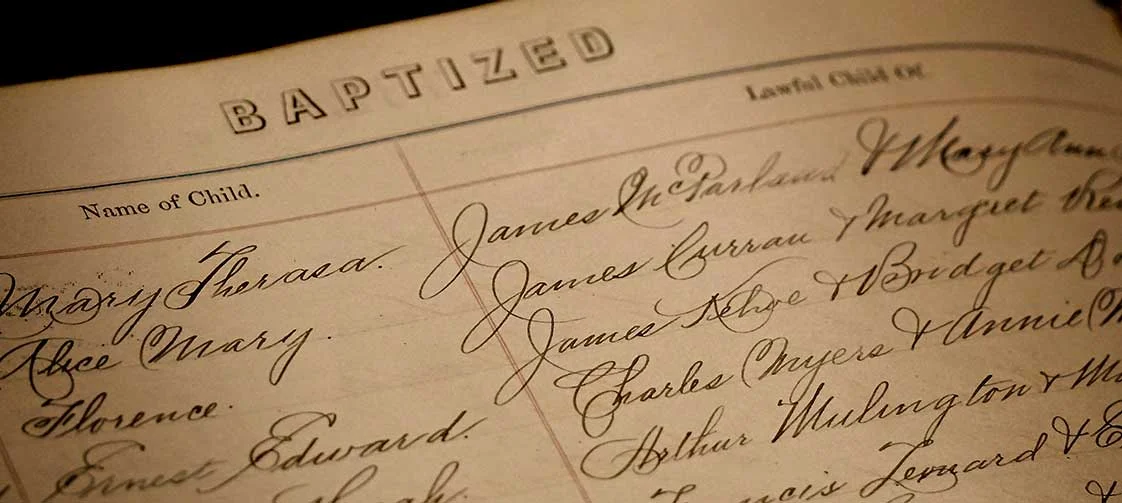 BAPTIZED
Name of Child. Lawful Child Of.
Mary Therasa. James McParland & Mary Ann
Alice Mary. James Curran & Margret
Florence. James Kehoe & Bridget
Ernest Edward. Charles Myers & Annie
Arthur Mulington &
Leonard &